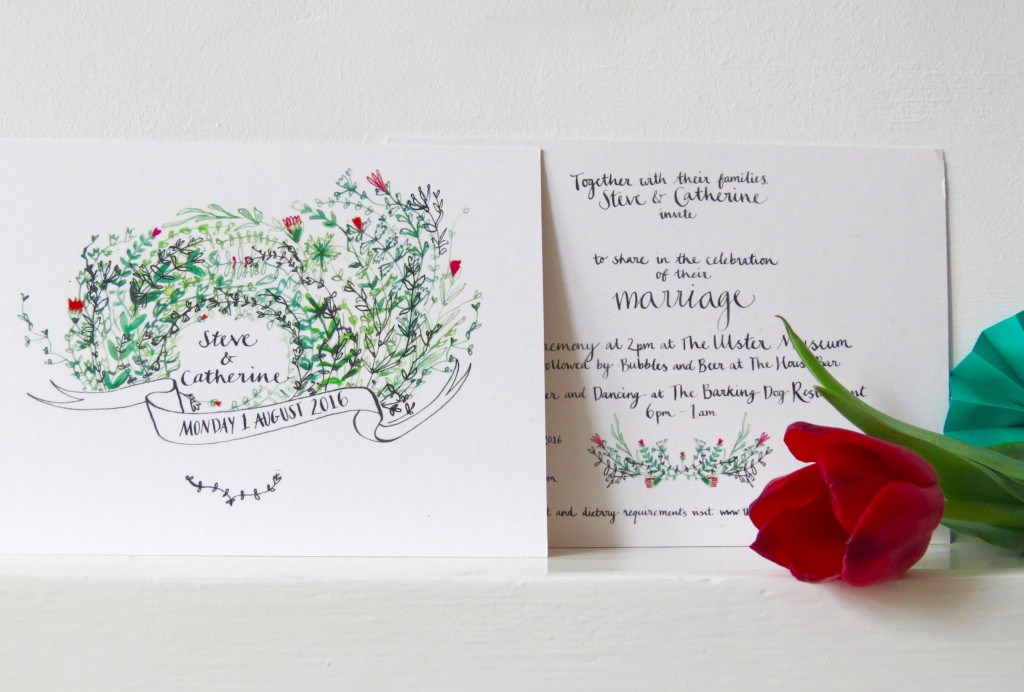 Steve
&
Catherine
MONDAY 1 AUGUST 2016
Together with their families,
Steve & Catherine
invite
to share in the celebration
of their
marriage
emony at 2pm at The Ulster Museum
ollowed by Bubbles and Beer at The House Bar
er and Dancing at The Barking Dog Rest
6pm - 1am
2016
m
t and dietry requirements visit www.